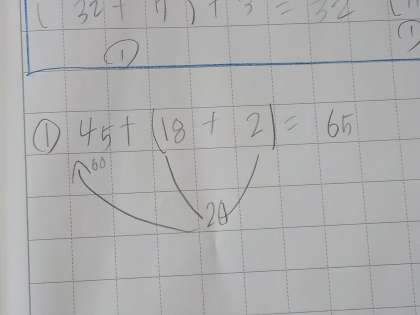 ( 32 + 7 ) + 3 = 32 (
① ①
① 45 + (18 + 2) = 65
60
20